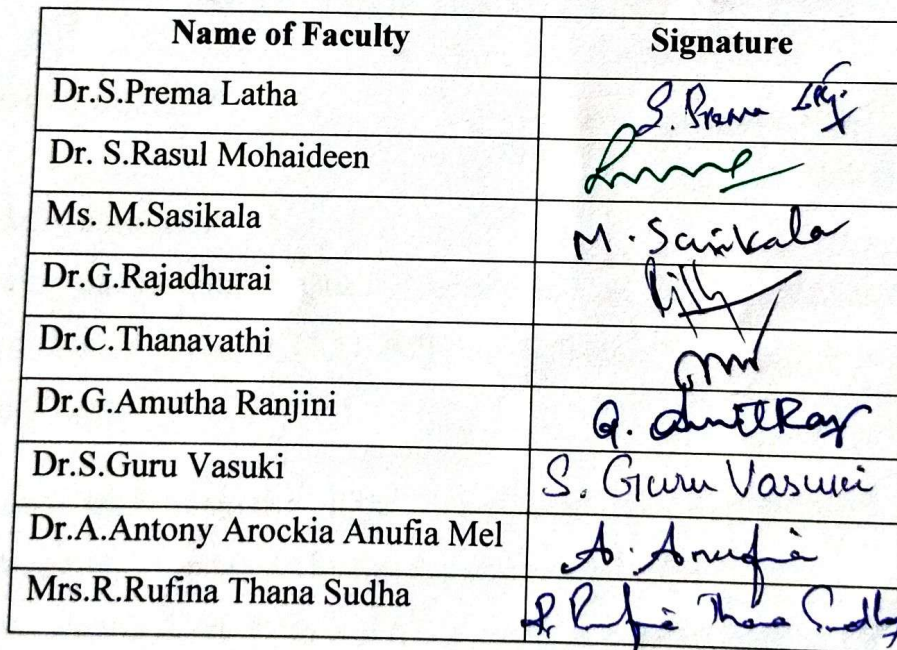 Name of Faculty Signature
Dr.S.Prema Latha S. Prema
Dr. S.Rasul Mohaideen
Ms. M.Sasikala M. Sasikala
Dr.G.Rajadhurai
Dr.C.Thanavathi
Dr.G.Amutha Ranjini G.
Dr.S.Guru Vasuki S. Guru Vasuki
Dr.A.Antony Arockia Anufia Mel A. Anufia
Mrs.R.Rufina Thana Sudha R. Rufina Thana Sudha